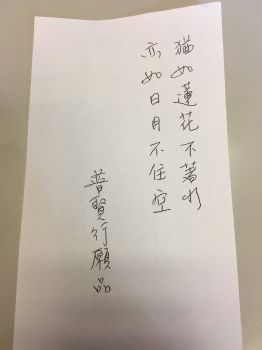 猶如蓮花不著水
亦如日月不住空
普賢行願品